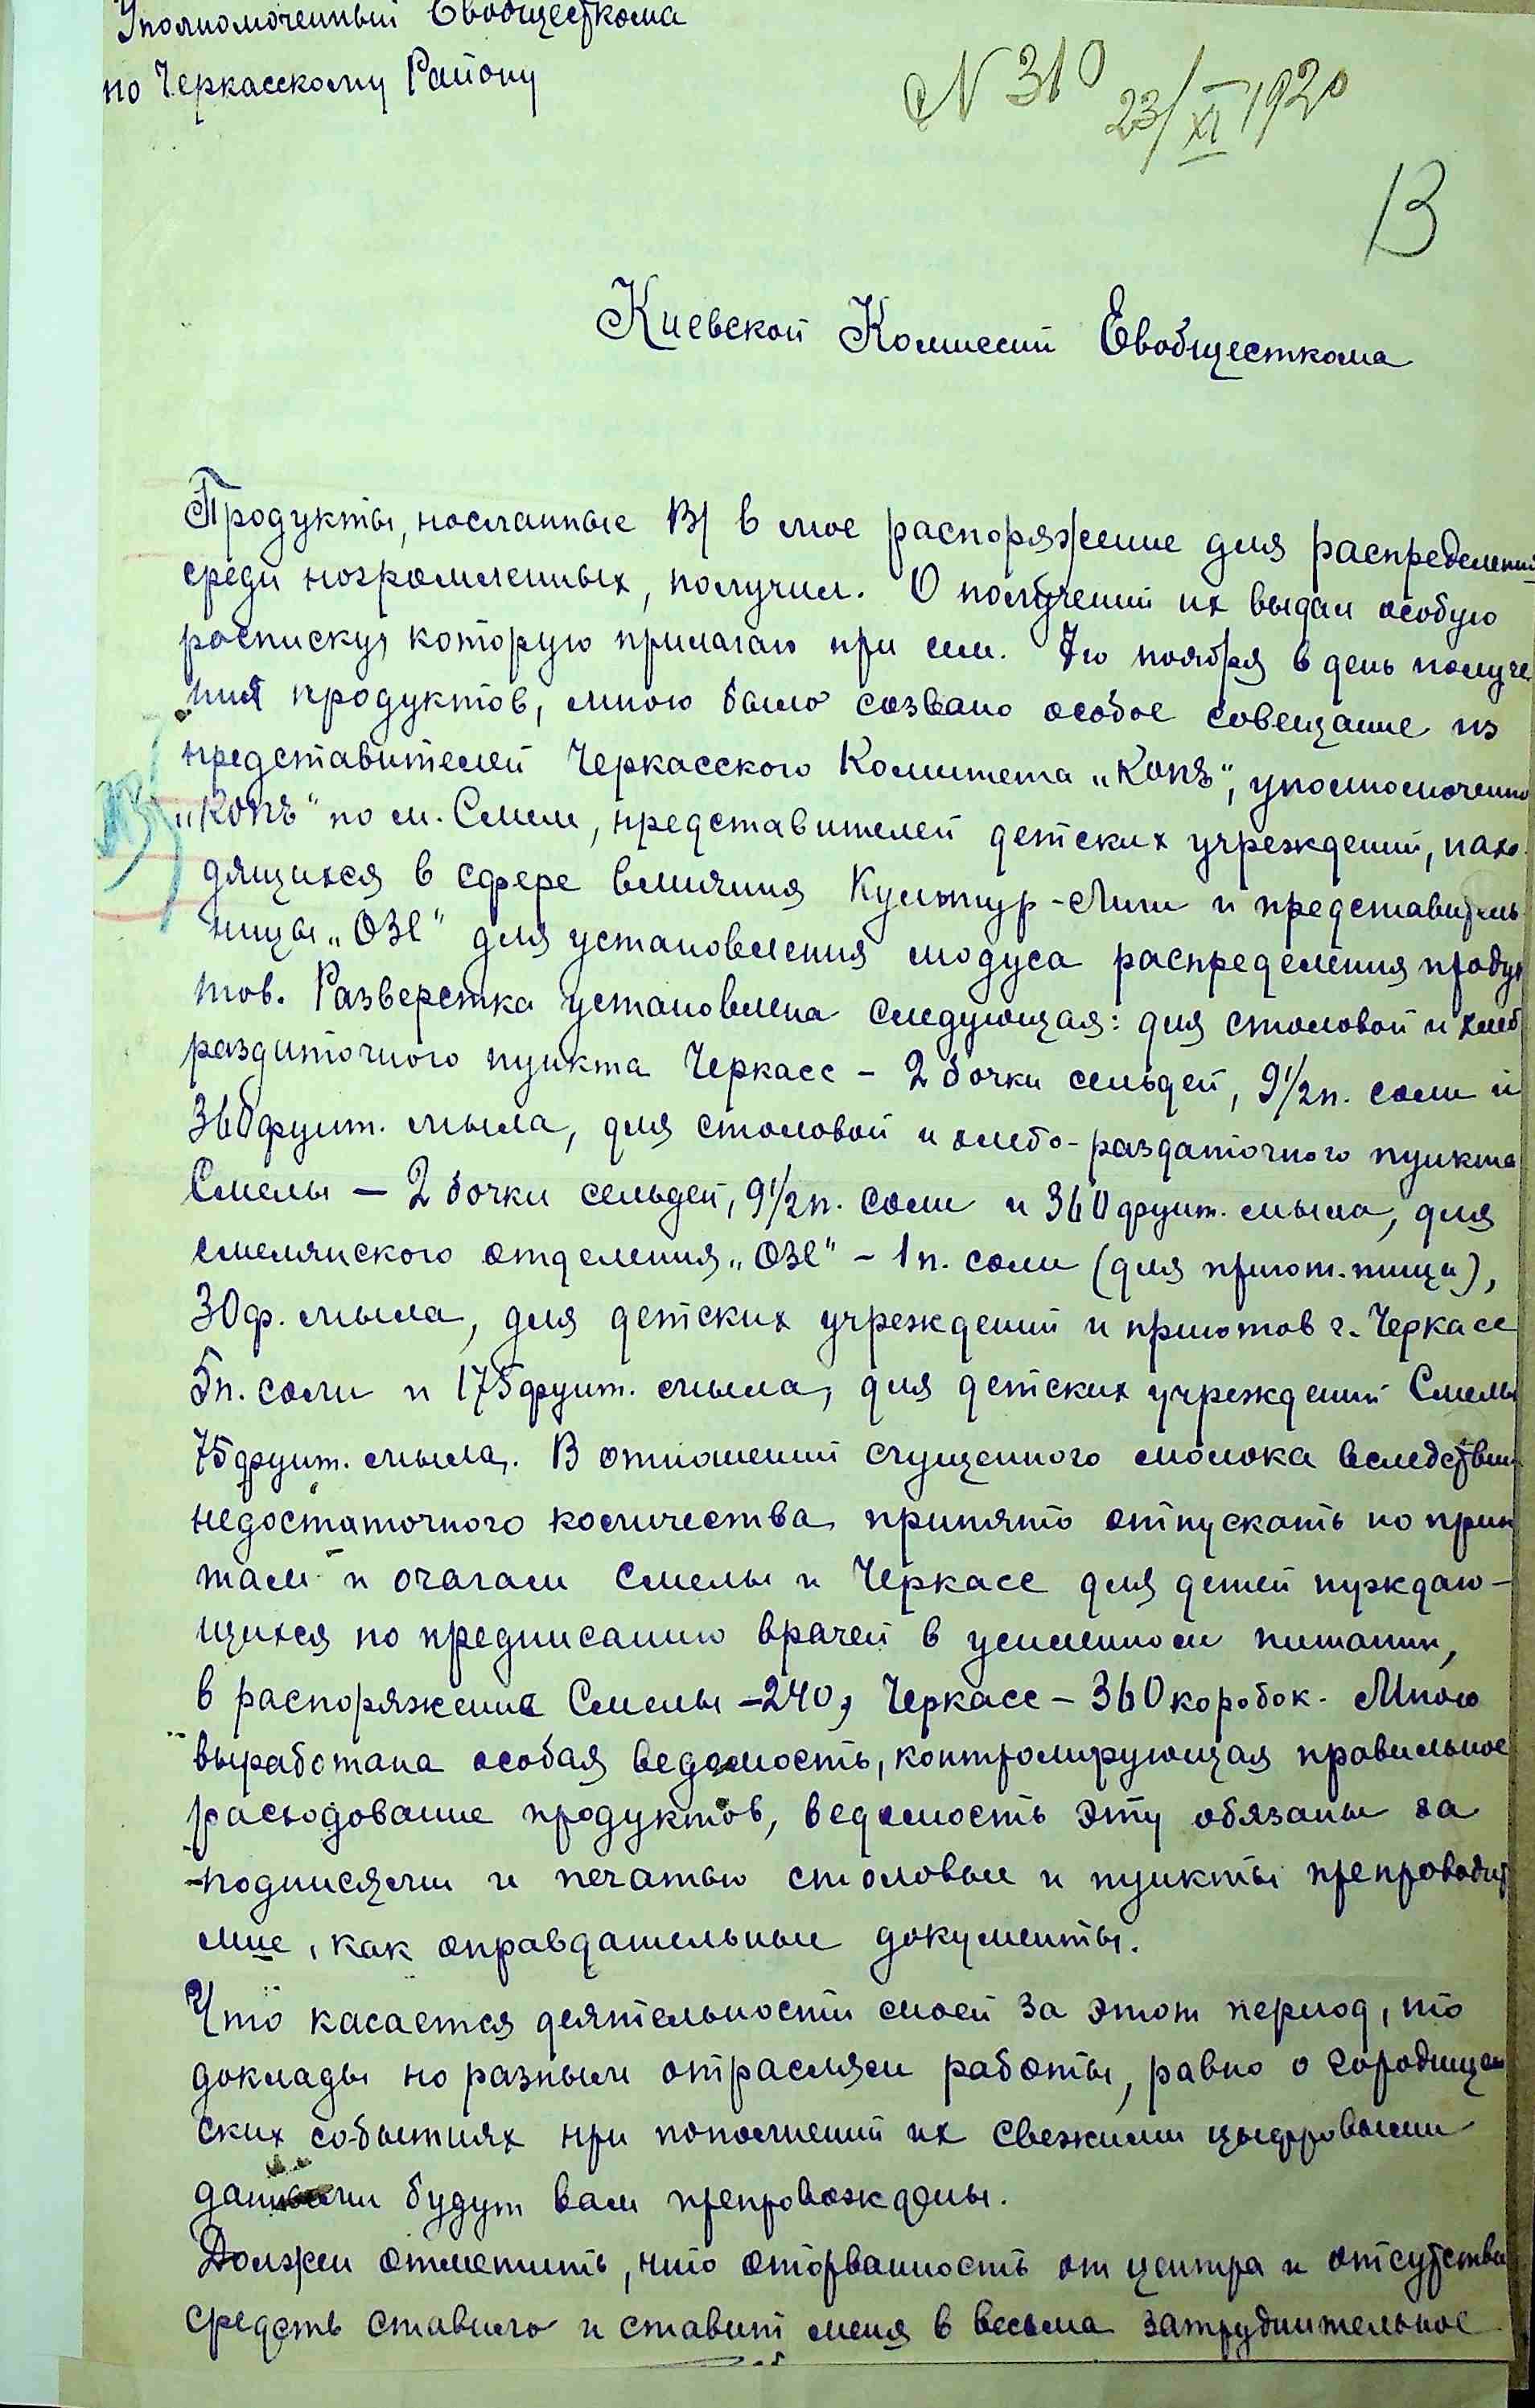 Уполномоченный Евобщесткома
по Черкасскому Району
N 310
23/XI 1920
13
Киевской Комиссии Евобщесткома
Продукты, посланные В/ в мое распоряжение для распределения
среди погромленных, получил. О получении их выдал особую
росписку, которую прилагаю при сем. 7го ноября в день получе
ния продуктов, мною было созвано особое совещание из
представителей Черкасского Комитета „Копъ", уполномоченно
„Копъ" по м. Смеле, представителей детских учреждений, нахо
дящихся в сфере влияния Культур-Лиги и представитель
ницы „ОЗЕ" для установления модуса распределения продук
тов. Разверстка установлена следующая: для столовой и хлеб
раздаточного пункта Черкасс – 2 бочки сельдей, 9½ п. соли и
360 фунт. мыла, для столовой и хлебо-раздаточного пункта
Смелы – 2 бочки сельдей, 9½ п. соли и 360 фунт. мыла, для
смелянского отделения „ОЗЕ" – 1 п. соли (для пригот. пищи),
30 ф. мыла, для детских учреждений и приютов г. Черкасс
5 п. соли и 175 фунт. мыла, для детских учреждений Смелы
75 фунт. мыла. В отношении сгущенного молока вследствии
недостаточного количества принято отпускать по прию
там и очагам Смелы и Черкасс для детей нуждаю-
щихся по предписанию врачей в усиленном питании,
в распоряжение Смелы – 240, Черкасс – 360 коробок. Мною
выработана особая ведомость, контролирующая правильное
расходование продуктов, ведомость эту обязаны за
подписями и печатью столовые и пункты препроводит
мне, как оправдательные документы.
Что касается деятельности моей за этот период, то
доклады по разным отраслям работы, равно о городищен
ских событиях при пополнении их свежими цыфровыми
данными будут вам препровождены.
Должен отметить, что оторванность от центра и отсутствие
средств ставило и ставит меня в весьма затруднительное